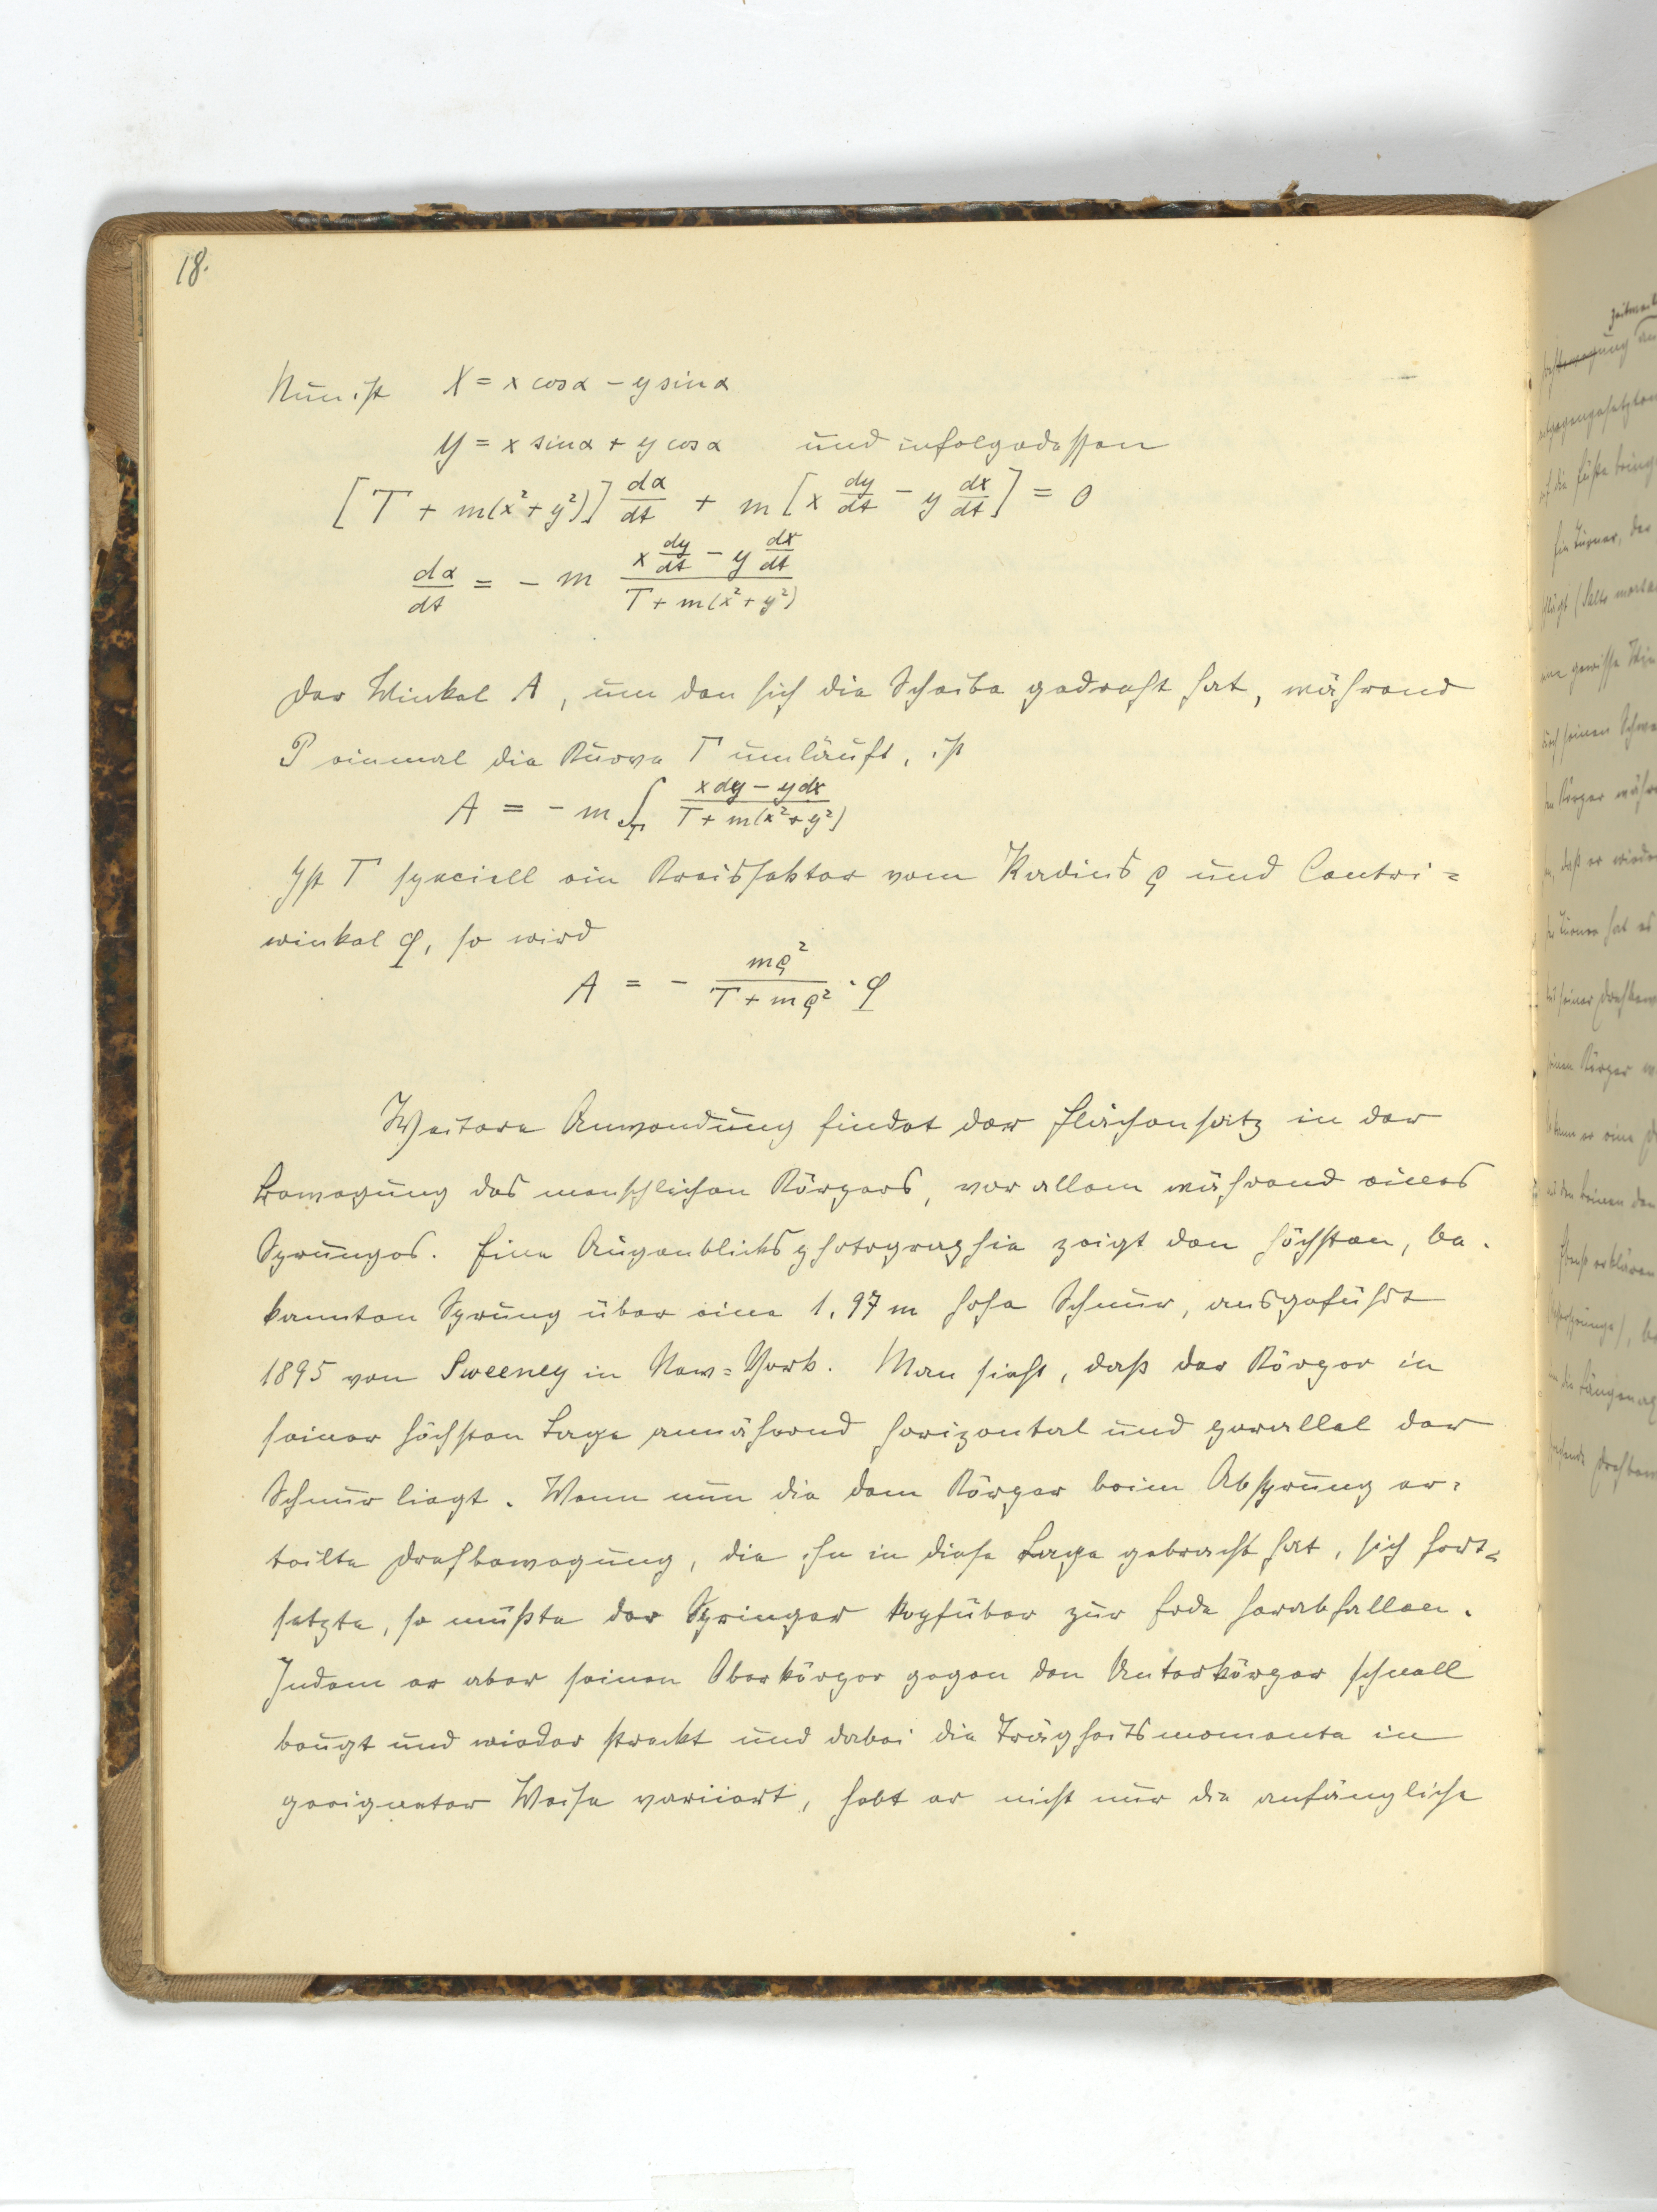 18.
Nun ist X = x cos α − y sin α
Y = x sin α + y cos α und infolgedessen
[T + m(x² + y²)] dα/dt + m [x dy/dt − y dx/dt] = 0
dα/dt = − m (x dy/dt − y dx/dt)/(T + m(x² + y²))
Der Winkel A, um den sich die Scheibe gedreht hat, während
P einmal die Kurve Γ umläuft, ist
A = − m ∫_Γ (x dy − y dx)/(T + m(x² + y²))
Ist Γ speciell ein Kreissektor vom Radius ϱ und Centri=
winkel φ, so wird
A = − mϱ²/(T + mϱ²) · φ
Weitere Anwendung findet der Flächensatz in der
Bewegung des menschlichen Körpers, vor allem während eines
Sprunges. Eine Augenblicksphotographie zeigt den höchsten, be-
kannten Sprung über eine 1.97 m hohe Schnur, ausgeführt
1895 von Sweeney in New=York. Man sieht, daß der Körper in
seiner höchsten Lage annähernd horizontal und parallel der
Schnur liegt. Wenn nun die dem Körper beim Absprung er-
teilte Drehbewegung, die ihn in diese Lage gebracht hat, sich fort=
setzte, so müßte der Springer kopfüber zur Erde herabfallen.
Indem er aber seinen Oberkörper gegen den Unterkörper schnell
beugt und wieder streckt und dabei die Trägheitsmomente in
geeigneter Weise variiert, hebt er nicht nur die anfängliche